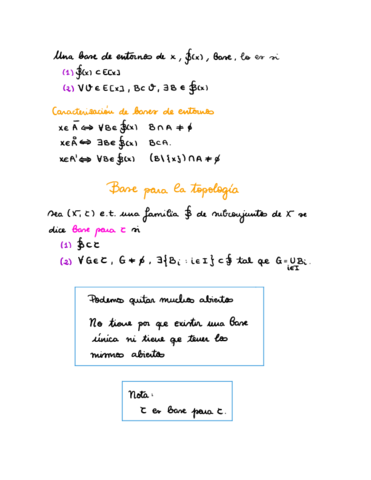 Una base de entornos de x, 𝔅(x), base, lo es si
(1) 𝔅(x) ⊂ E[x]
(2) ∀U ∈ E[x], B⊂U, ∃B ∈ 𝔅(x)
Caracterización de bases de entornos
x∈Ā ⇔ ∀B∈𝔅(x) B∩A ≠ ∅
x∈Å ⇔ ∃B∈𝔅(x) B⊂A.
x∈A' ⇔ ∀B∈𝔅(x) (B\{x})∩A ≠ ∅
Base para la topología
sea (X, τ) e.t. una familia 𝔅 de subconjuntos de X se
dice base para τ si
(1) 𝔅⊂τ
(2) ∀G∈τ, G ≠ ∅, ∃{Bi : i∈I} ⊂ 𝔅 tal que G = ∪Bi.
i∈I
Podemos quitar muchos abiertos
No tiene por que existir una base
única ni tiene que tener los
mismos abiertos
Nota:
τ es base para τ.